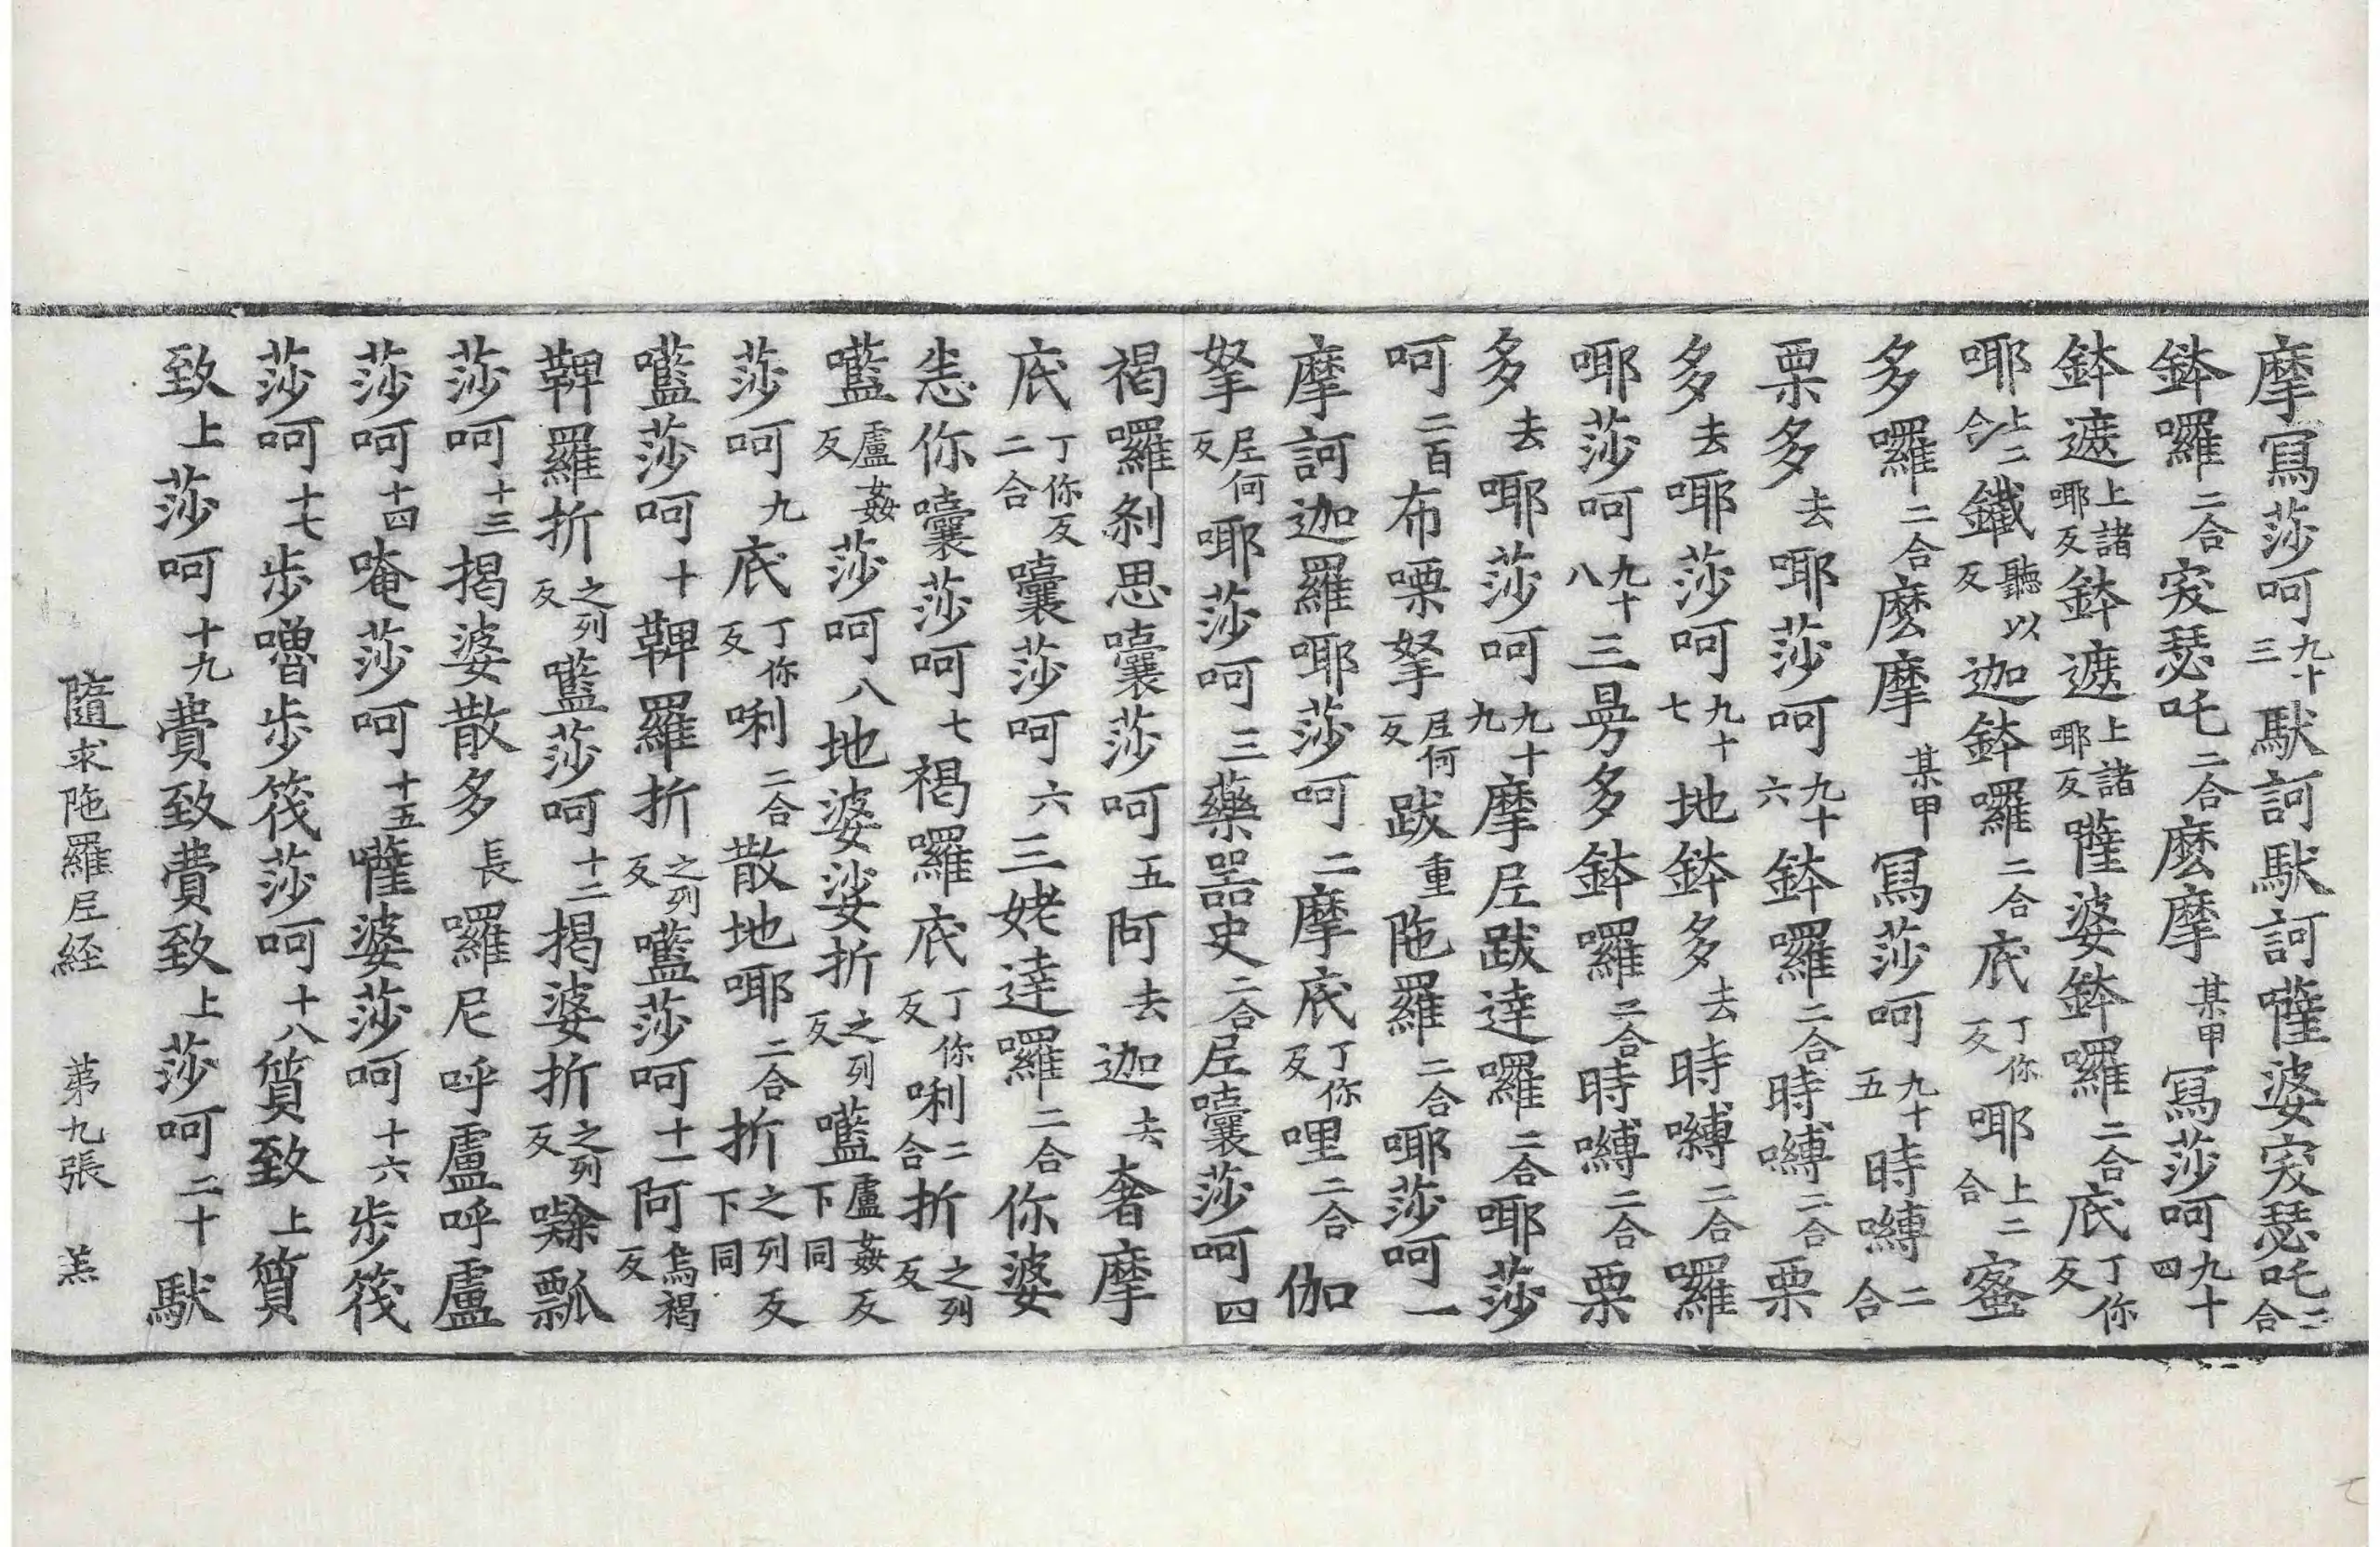 摩寫莎呵九十三馱訶馱訶㘕婆㝮瑟吒二合
鉢囉二合㝮瑟吒二合麽摩某甲寫莎呵九十四
鉢遮上諸耶反鉢遮上諸耶反㘕婆鉢囉二合底丁你反
耶上二合鑯聽以反迦鉢囉二合底丁你反耶上二合蜜
多囉二合麽摩某甲寫莎呵九十五時嚩二合
栗多去耶莎呵九十六鉢囉二合時嚩二合栗
多去耶莎呵九十七地鉢多去時嚩二合羅
耶莎呵九十八三曼多鉢囉二合時嚩二合栗
多去耶莎呵九十九摩尼跋達囉二合耶莎
呵二百布㗚拏尼何反跋重陁羅二合耶莎呵一
摩訶迦羅耶莎呵二摩底丁你反哩二合伽
拏尼何反耶莎呵三藥噐史二合尼囊莎呵四
褐囉剎思囊莎呵五阿去迦去奢摩
底丁你反二合囊莎呵六三姥達囉二合你婆
恙你囊莎呵七褐囉底丁你反唎二合折之列反
㘕盧姦反莎呵八地婆娑折之列反㘕盧姦反下同
莎呵九底丁你反唎二合散地耶二合折之列反下同
㘕莎呵十鞞羅折之列反㘕莎呵十一阿烏褐反
鞞羅折之列反㘕莎呵十二揭婆折之列反㘑瓢
莎呵十三揭婆散多長囉尼呼盧呼盧
莎呵十四唵莎呵十五㘕婆莎呵十六步筏
莎呵十七步嚕步筏莎呵十八質致上質
致上莎呵十九費致費致上莎呵二十馱
隨求陁羅尼経 第九張 羔